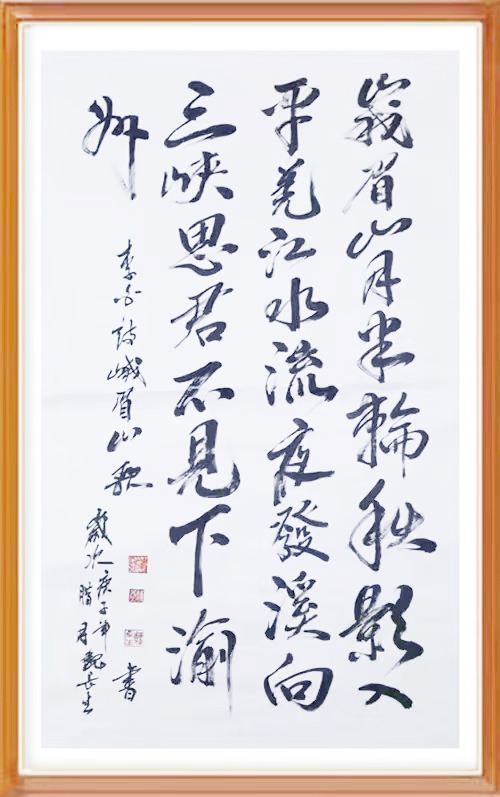 峩眉山月半輪秋影入
平羌江水流夜發溪向
三峽思君不見下渝
州
李白詩峨眉山歌
歲次庚子年
腊月
書